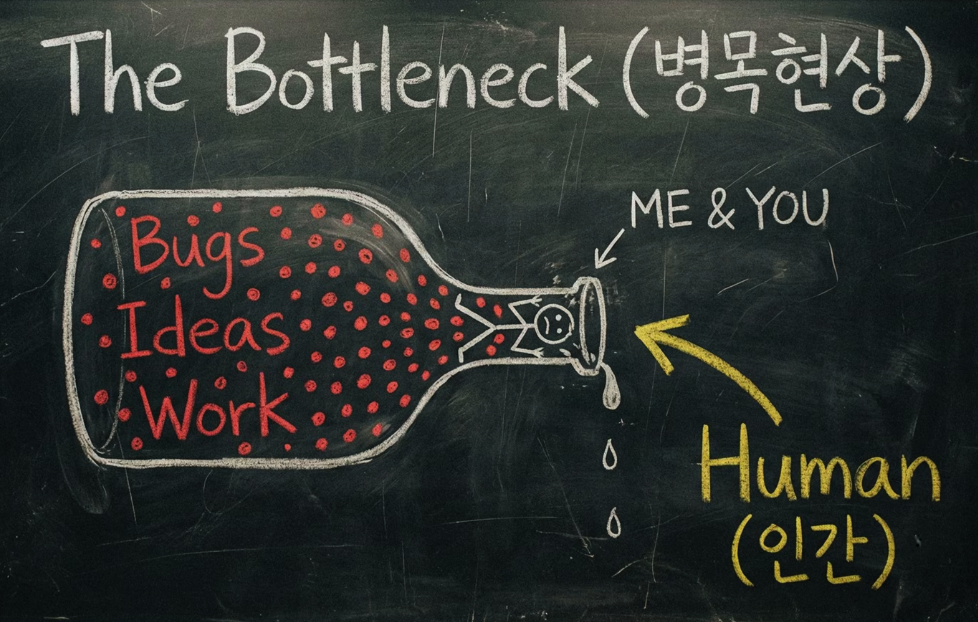 The Bottleneck (병목현상)
ME & YOU
Bugs
Ideas
Work
Human
(인간)